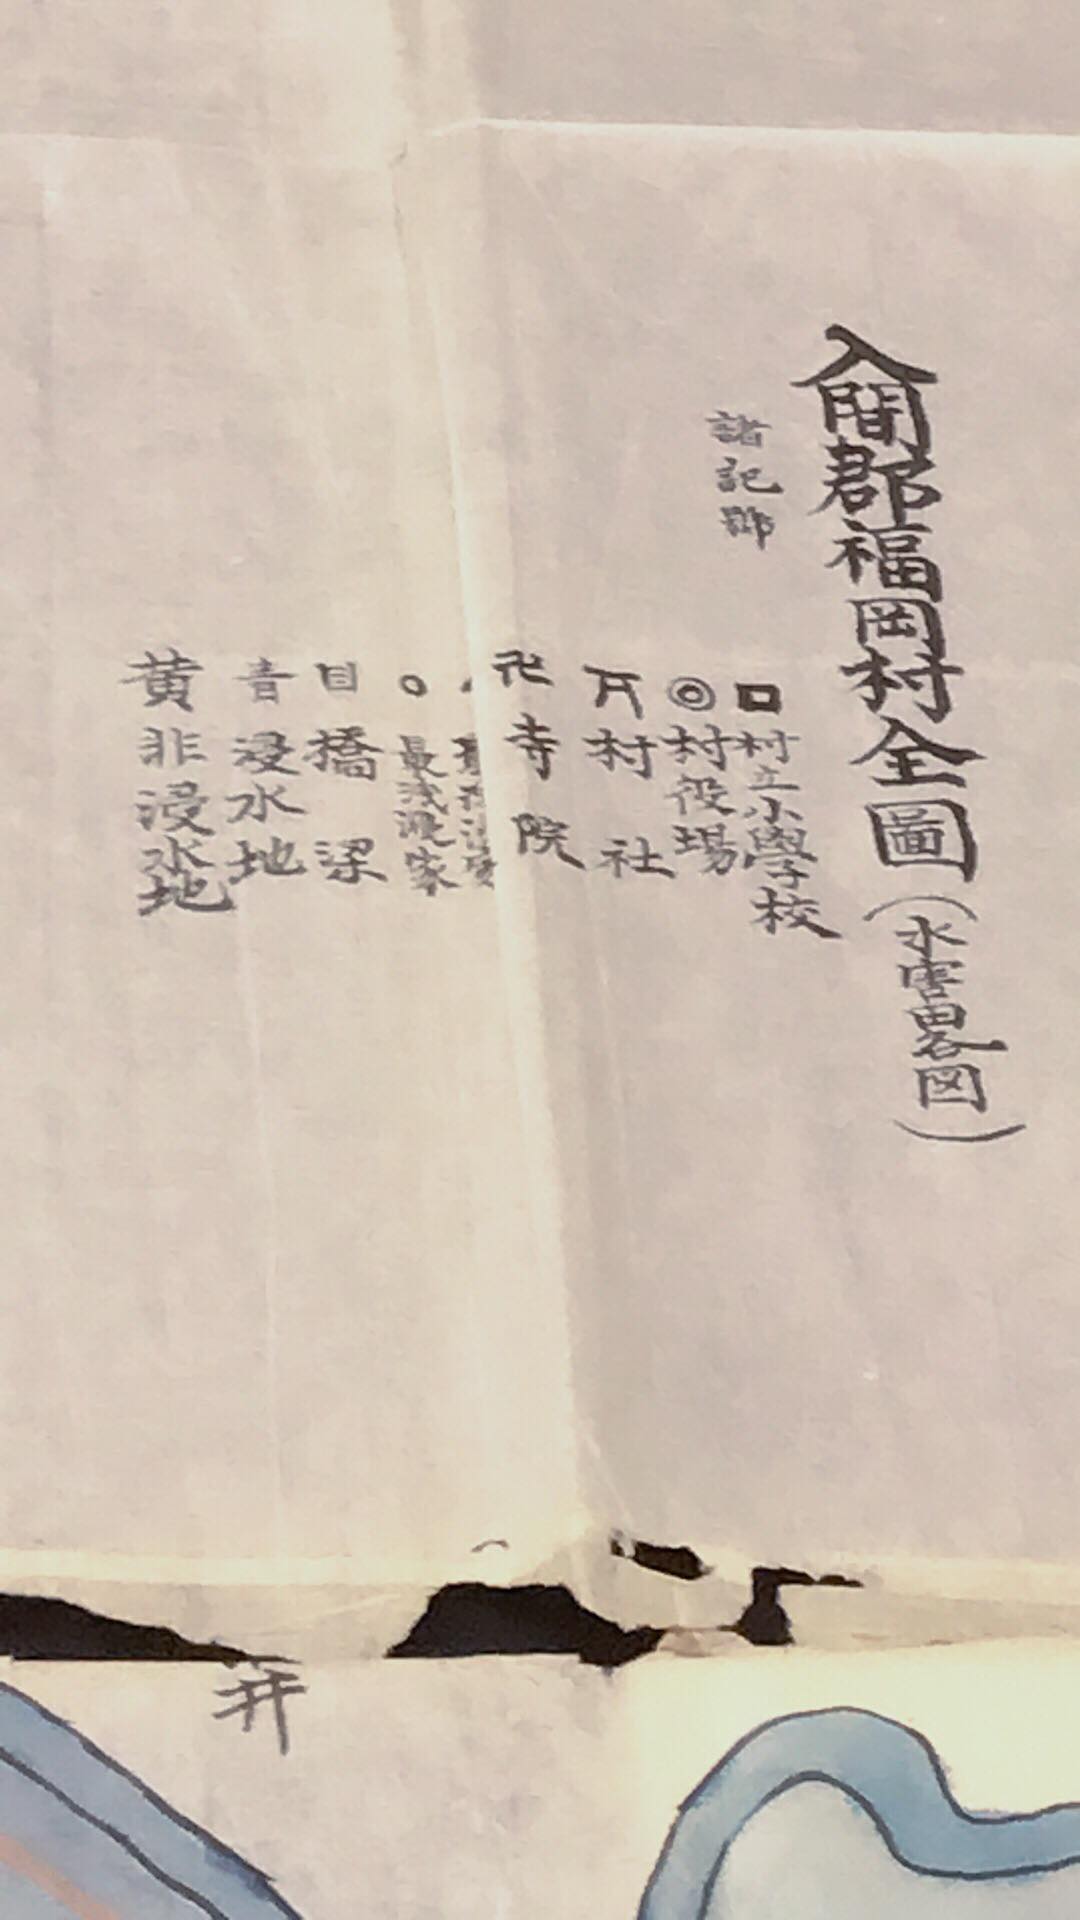 入間郡福岡村全圖(水害畧図)
諸記號
村立小學校
◎村役場
村社
卍寺院
最浸家
橋梁
青浸水地
黄非浸水地